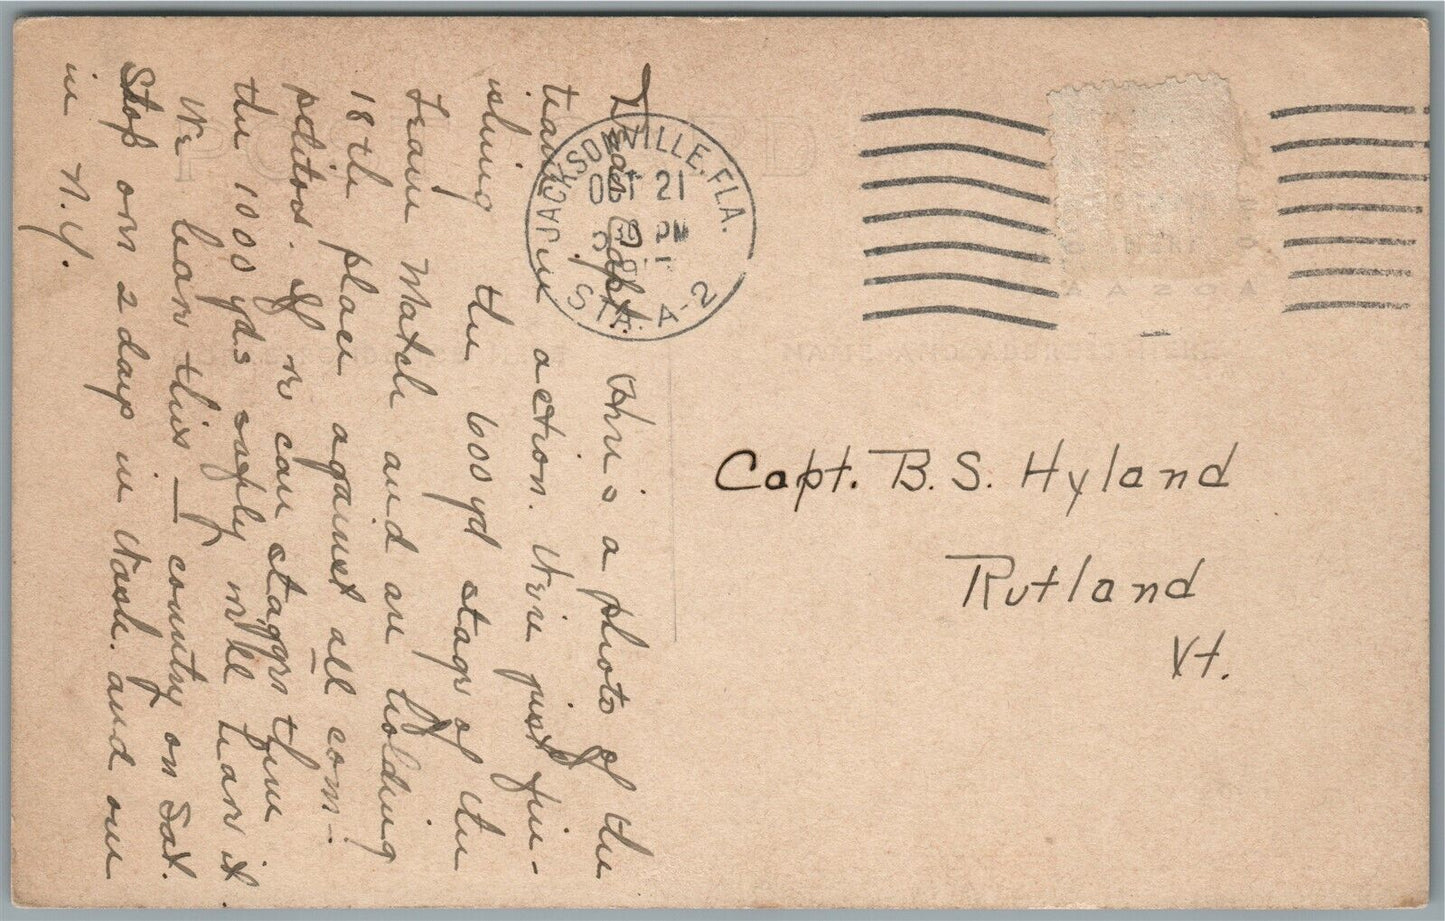 Dear Capt. This is a photo of the
team in action. We're just fin-
ishing the 600 yd stage of the
Team Match and are holding
18th place against all com-
petitors. If we can stagger thru
the 1000 yds safely we'll tear it
We leave this country on Sat.
Stop over 2 days in Wash. and one
in N.Y.
JACKSONVILLE, FLA.
OCT 21
PM
STA. A-2
Capt. B. S. Hyland
Rutland
Vt.
POST CARD